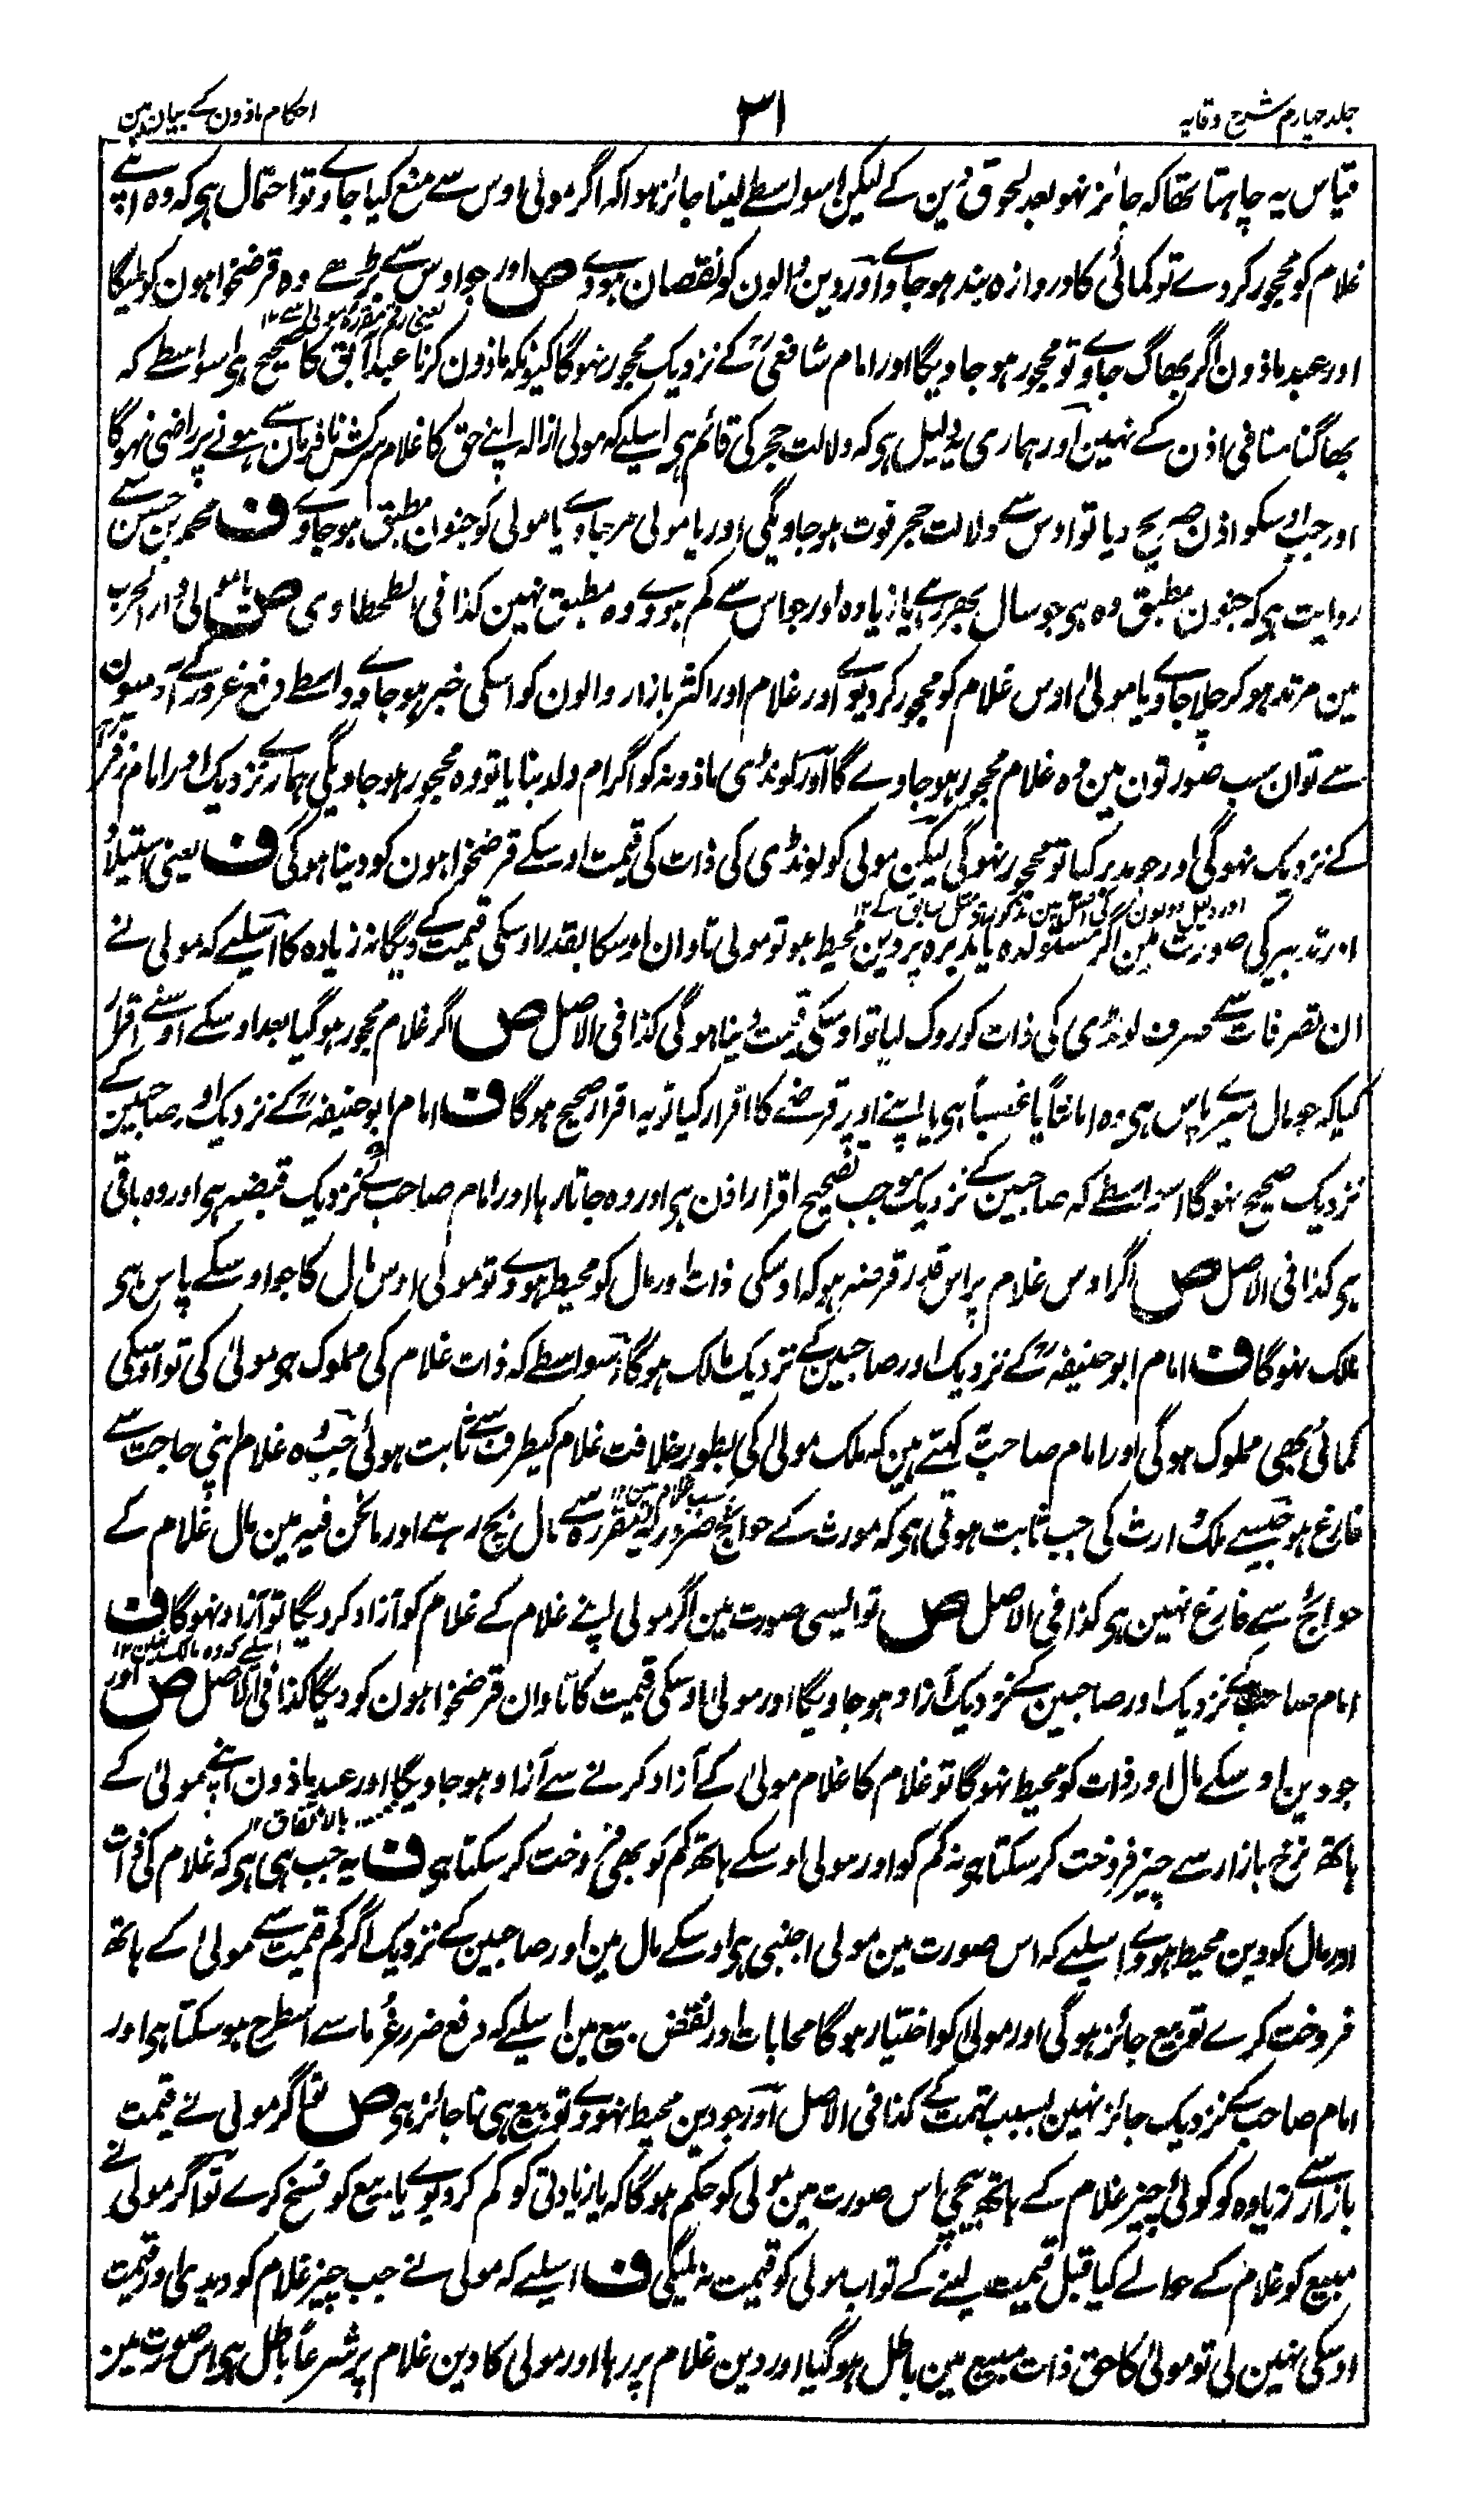 جلد چہارم شرح وقایہ
۳۱
احکام ماذون کے بیان مین
قیاس یہ چاہتا تھا کہ جائز نہو بعد لحوق دین کے لیکن اسواسطے لینا جائز ہوا کہ اگر مولی اوس سے منع کیا جاوے تو احتمال ہی کہ وہ اپنے
غلام کو محجور کر دے تو کمائی کا دروازہ بند ہو جاوے اور دین والون کو نقصان ہووے ص اور جو اوس سے بڑھے وہ قرضخواہون کو ملیگا
یعنی رقم مقررہ مولی سے ۱۲
اور عبد ماذون اگر بھاگ جاوے تو محجور ہو جاویگا اور امام شافعیؒ کے نزدیک محجور نہوگا کیونکہ ماذون کرنا عبد آبق کا صحیح ہی اسواسطے کہ
بھاگنا منافی اذن کے نہین اور ہماری یہ دلیل ہی کہ دلالت حجر کی قائم ہی اسلیے کہ مولی ازالہ اپنے حق کا غلام سرکش نافرمان سے ہونے پر راضی نہوگا
اور جب اوسکو اذن صریح دیا تو اوس سے دلالت حجر فوت ہو جاویگی اور یا مولی مر جاوے یا مولی کو جنون مطبق ہو جاوے ف محمد بن حسن سے
روایت ہی کہ جنون مطبق وہ ہی جو سال بھر رہے یا زیادہ اور جو اس سے کم ہووے وہ مطبق نہین کذا فی الطحطاوی ص یا مولی دار الحرب
مین مرتد ہو کر چلا جاوے یا مولیٰ اوس غلام کو محجور کر دیوے اور غلام اور اکثر بازار والون کو اسکی خبر ہو جاوے واسطے دفع غرور کے آدمیون
سے تو ان سب صورتون مین وہ غلام محجور ہو جاوے گا اور لونڈی ماذونہ کو اگر ام ولد بنایا تو وہ محجور ہو جاویگی ہمارے نزدیک اور امام زفرؒ
کے نزدیک نہوگی اور جو مدبر کیا تو محجور نہوگی لیکن مولی کو لونڈی کی ذات کی قیمت اوسکے قرضخواہون کو دینا ہوگی ف یعنی استیلاد
اور تدبیر کی صورت مین اگر مستولدہ یا مدبرہ پر دین محیط ہو تو مولی تاوان اوسکا بقدر اوسکی قیمت کے دیگا نہ زیادہ کا اسلیے کہ مولی نے
ان تصرفات سے صرف لونڈی کی ذات کو روک لیا تو اوسکی قیمت دینا ہوگی کذا فی الاصل ص اگر غلام محجور ہو گیا بعد اوسکے اوسنے اقرار
کیا کہ جو مال میرے پاس ہی وہ امانتاً یا غصباً ہی یا اپنے اوپر قرضے کا اقرار کیا تو یہ اقرار صحیح ہوگا ف امام ابو حنیفہؒ کے نزدیک اور صاحبین کے
نزدیک صحیح نہوگا اسواسطے کہ صاحبین کے نزدیک موجب تصحیح اقرار اذن ہی اور وہ جاتا رہا اور امام صاحب کے نزدیک قبضہ ہی اور وہ باقی
ہی کذا فی الاصل ص اگر اوس غلام پر اس قدر قرضہ ہو کہ اوسکی ذات اور مال کو محیط ہووے تو مولی اوس مال کا جو اوسکے پاس ہی
مالک نہوگا ف امام ابو حنیفہؒ کے نزدیک اور صاحبین کے نزدیک مالک ہوگا اسواسطے کہ ذات غلام کی مملوک ہی مولیٰ کی تو اوسکی
کمائی بھی مملوک ہوگی اور امام صاحبؒ کہتے ہین کہ ملک مولیٰ کی بطور خلافت غلام کیطرف سے ثابت ہوئی جب وہ غلام اپنی حاجت سے
فارغ ہو جیسے ملک وارث کی جب ثابت ہوتی ہی کہ مورث کے حوائج ضروریہ مقررہ سے مال بچ رہے اور مانحن فیہ مین مال غلام کے
حوائج سے فارغ نہین ہی کذا فی الاصل ص تو ایسی صورت مین اگر مولی اپنے غلام کے غلام کو آزاد کر دیگا تو آزاد نہوگا ف
اسلیے کہ وہ مالک نہین ۱۲
امام صاحب کے نزدیک اور صاحبین کے نزدیک آزاد ہو جاویگا اور مولی اوسکی قیمت کا تاوان قرضخواہون کو دیگا کذا فی الاصل ص اور
جو دین اوسکے مال اور ذات کو محیط نہوگا تو غلام کا غلام مولیٰ کے آزاد کرنے سے آزاد ہو جاویگا اور عبد ماذون اپنے مولیٰ کے
بالاتفاق ۱۲
ہاتھ نرخ بازار سے چیز فروخت کر سکتا ہی نہ کم کو اور مولی اوسکے ہاتھ کم کو بھی فروخت کر سکتا ہی ف یہ جب ہی ہی کہ غلام کی ذات
اور مال کو دین محیط ہووے اسلیے کہ اس صورت مین مولی اجنبی ہی اوسکے مال مین اور صاحبین کے نزدیک اگر کم قیمت سے مولیٰ کے ہاتھ
فروخت کرے تو بیع جائز ہوگی اور مولیٰ کو اختیار ہوگا محابات اور نقض بیع مین اسلیے کہ دفع ضرر غرما سے اسطرح ہو سکتا ہی اور
امام صاحب کے نزدیک جائز نہین بسبب تہمت کے کذا فی الاصل اور جو دین محیط نہووے تو بیع ہی ناجائز ہی ص تو اگر مولی نے قیمت
بازار سے زیادہ کو کوئی چیز غلام کے ہاتھ بیچی اس صورت مین مولی کو حکم ہوگا کہ یا زیادتی کو کم کر دیوے یا بیع کو فسخ کرے تو اگر مولی نے
مبیع کو غلام کے حوالے کیا قبل قیمت لینے کے تو اب مولی کو قیمت نہ ملیگی ف اسلیے کہ مولی نے جب چیز غلام کو دیدی اور قیمت
اوسکی نہین لی تو مولیٰ کا حق ذات مبیع مین باطل ہو گیا اور دین غلام پر رہا اور مولی کا دین غلام پر شرعاً باطل ہی اس صورت مین